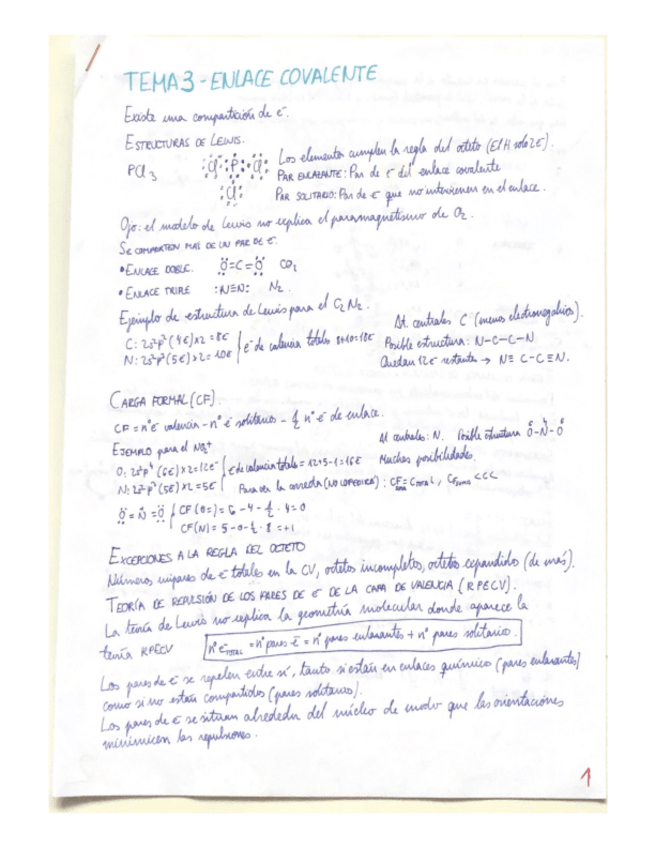 TEMA 3 - ENLACE COVALENTE
Existe una compartición de e⁻.
ESTRUCTURAS DE LEWIS.
PCl₃
:Cl:P:Cl:
:Cl:
Los elementos cumplen la regla del octeto (El H solo 2e⁻).
PAR ENLAZANTE: Par de e⁻ del enlace covalente
PAR SOLITARIO: Par de e⁻ que no intervienen en el enlace.
Ojo: el modelo de Lewis no explica el paramagnétismo de O₂.
SE COMPARTEN MAS DE UN PAR DE e⁻.
• ENLACE DOBLE. Ö=C=Ö CO₂
• ENLACE TRIPLE :N≡N: N₂
Ejemplo de estructura de Lewis para el C₂N₂.
C: 2s²p² (4e⁻)x2 = 8e⁻
N: 2s²p³ (5e⁻)x2 = 10e⁻
e⁻ de valencia totales 8+10=18e⁻
At. centrales C (menos electronegativos).
Posible estructura: N-C-C-N
Quedan 12e⁻ restante → N≡C-C≡N.
CARGA FORMAL (CF).
CF = nº e⁻ valencia - nº e⁻ solitarios - ½ nº e⁻ de enlace.
EJEMPLO para el NO₂⁺
O: 2s²p⁴ (6e⁻)x2 = 12e⁻
N: 2s²p³ (5e⁻)x2 = 5e⁻
e⁻ de valencia totales = 12+5-1 = 16e⁻
At centrales: N. Posible estructura O-N-O
Muchas posibilidades.
Para ver la correcta
Ö=N=Ö
CF (O=) = 6-4-½·4=0
CF(N) = 5-0-½·8=+1
EXCEPCIONES A LA REGLA DEL OCTETO
Números impares de e⁻ totales en la CV, octetos incompletos, octetos expandidos (de más).
TEORÍA DE REPULSIÓN DE LOS PARES DE e⁻ DE LA CAPA DE VALENCIA (RPECV).
La teoría de Lewis no explica la geometría molecular donde aparece la
teoría RPECV
nº e⁻TOTAL = nº pares e⁻ = nº pares enlazantes + nº pares solitario.
Los pares de e⁻ se repelen entre sí, tanto si están en enlaces químicos (pares enlazantes)
como si no están compartidos (pares solitarios).
Los pares de e⁻ se situan alrededor del núcleo de modo que las orientaciones
minimicen las repulsiones.
1